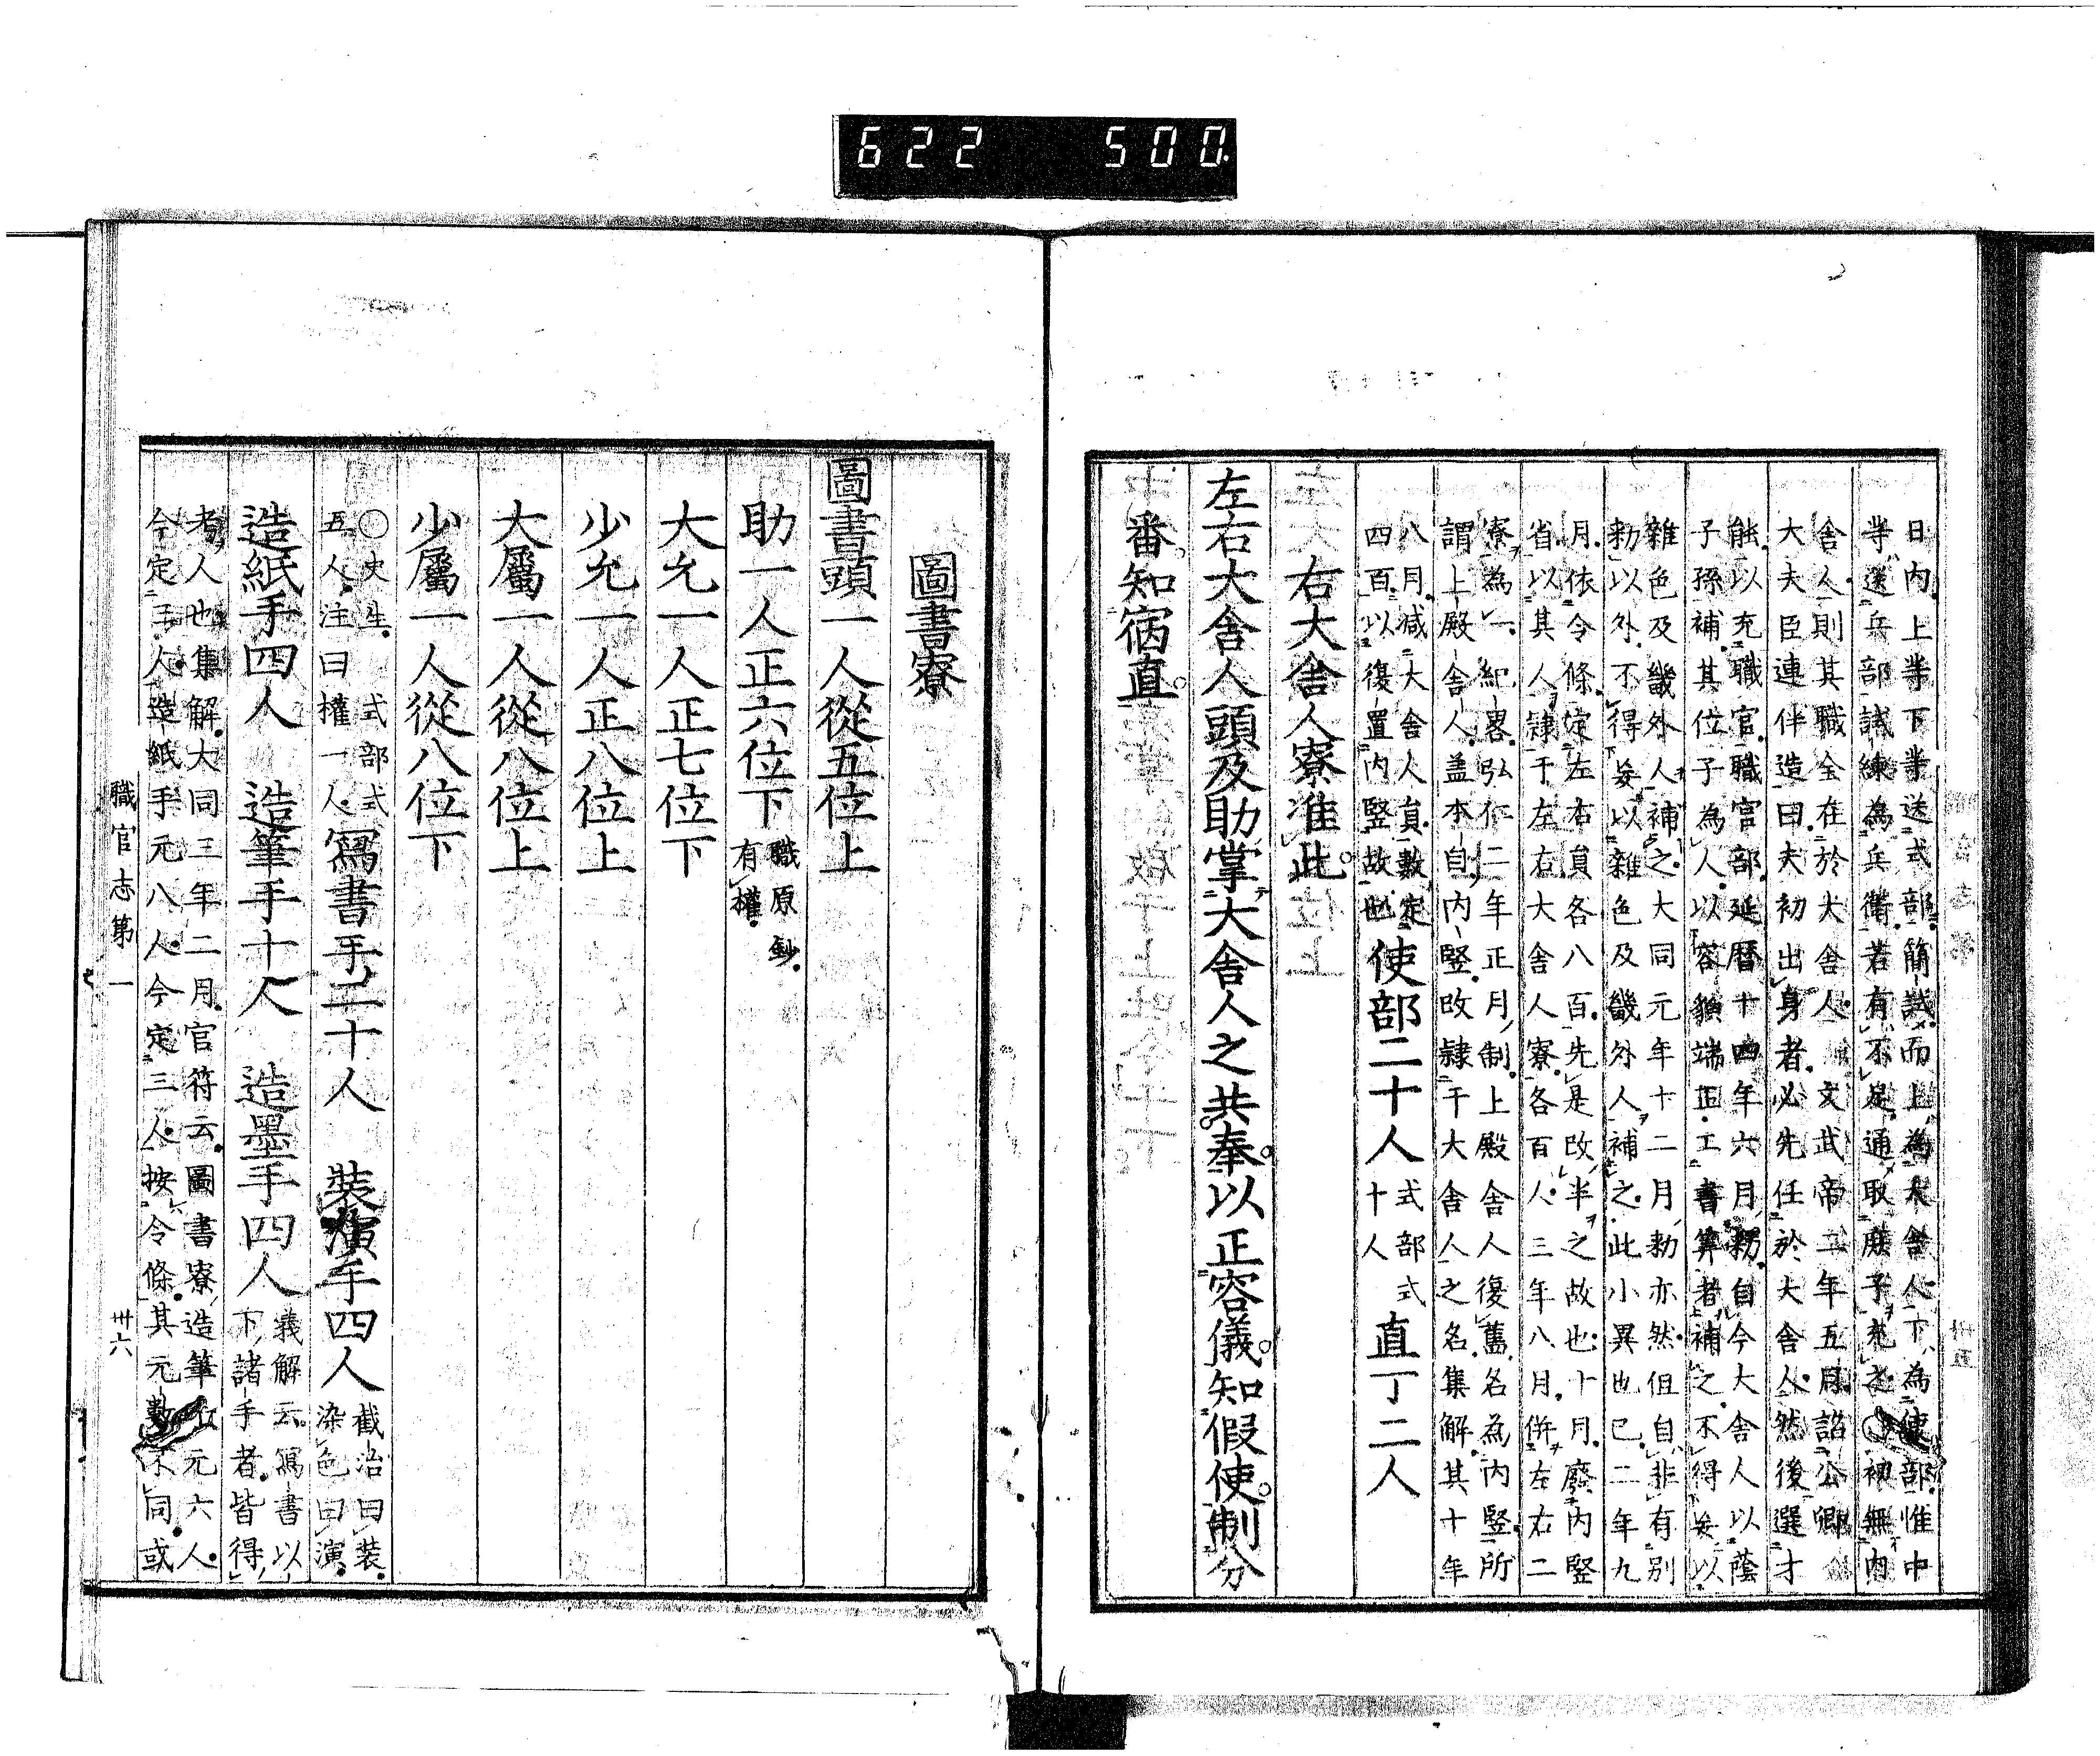 622 500
日内上等下等送式部簡試而上為大舎人下為使部惟中
等送兵部試練為兵衛若有不足通取庶子充之初無内
舎人則其職全在於大舎人文武帝二年五月詔公卿
大夫臣連伴造曰夫初出身者必先任於大舎人然後選才
能以充職官職官部延暦十四年六月勅自今大舎人以蔭
子孫補其位子為人以容貌端正工書算者補之不得妄以
雜色及畿外人補之大同元年十二月勅亦然但自非有別
勅以外不得妄以雜色及畿外人補之此小異也已二年九
月依令條定左右員各八百先是改半之故也十月廢内竪
省以其人隷于左右大舎人寮各百人三年八月併左右二
寮為一紀畧弘仁二年正月制上殿舎人復舊名為内竪所
謂上殿舎人盖本自内竪改隷于大舎人之名集解其十年
八月减大舎人員數定
四百以復置内竪故也
使部二十人
式部式
十人
直丁二人
右大舎人寮准此
左右大舎人頭及助掌大舎人之共奉以正容儀知假使制分
番知宿直
圖書寮
圖書頭一人從五位上
助一人正六位下
職原鈔
有權
大允一人正七位下
少允一人正八位上
大屬一人從八位上
少屬一人從八位下
○史生 式部式
五人注曰權一人
寫書手二十人 裝潢手四人
截治曰裝
染色曰演
造紙手四人 造筆手十人 造墨手四人
義解云寫書以
下諸手者皆得
考人也集解大同三年二月官符云圖書寮造筆手元六人
今定三人造紙手元八人今定三人按令條其元數不同或
職官志第一
卅六